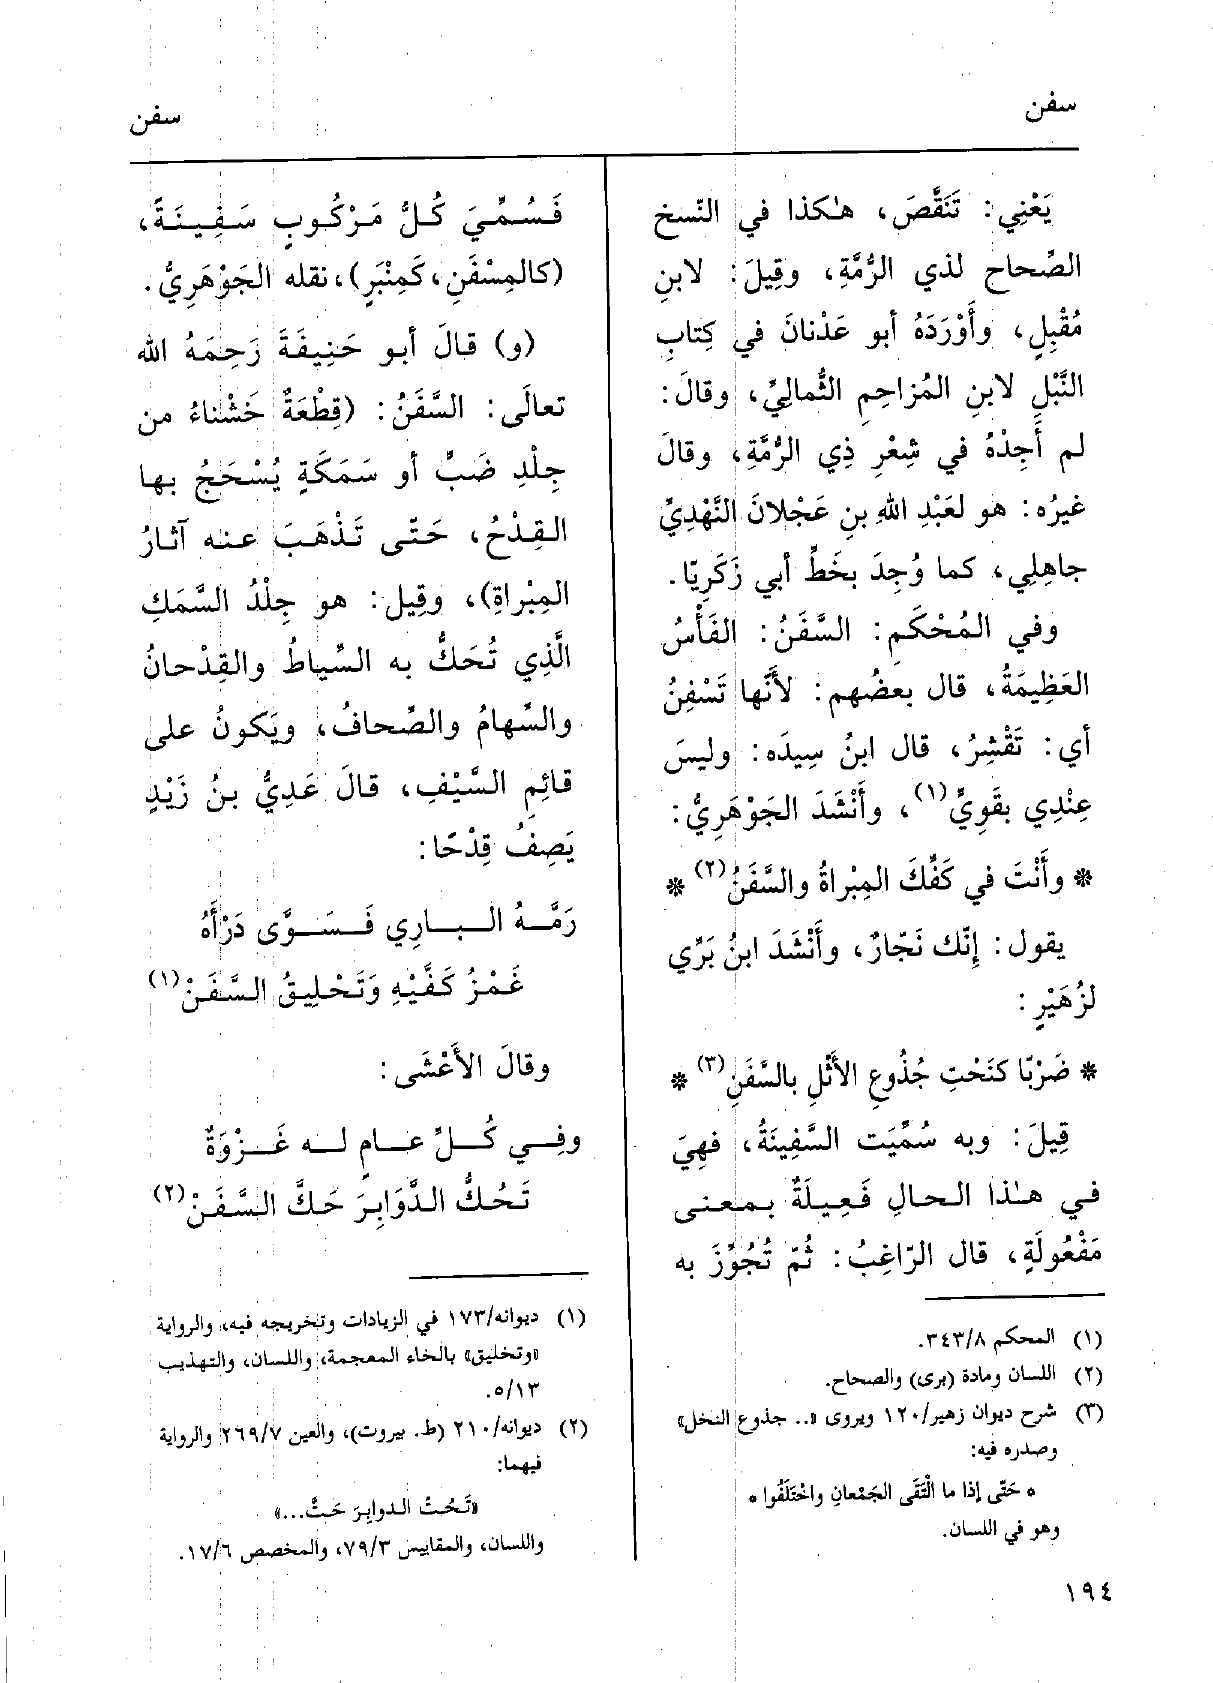 سفن
سفن
يَعْنِي: تَنَقَّصَ، هٰكذا في النّسخ
الصِّحاح لذي الرُّمَّةِ، وقِيلَ: لابنِ
مُقْبِلٍ، وأَوْرَدَهُ أبو عَدْنانَ في كِتابِ
النَّبْلِ لابنِ المُزاحِمِ الثُّمالِيِّ، وقالَ:
لم أَجِدْهُ في شِعْرِ ذِي الرُّمَّةِ، وقالَ
غيرُه: هو لعَبْدِ اللهِ بنِ عَجْلانَ النَّهْدِيِّ
جاهِلِي، كما وُجِدَ بخَطِّ أبي زَكَرِيّا.
وفي المُحْكَمِ: السَّفَنُ: الفَأْسُ
العَظِيمَةُ، قال بعضُهم: لأَنَّها تَسْفِنُ
أي: تَقْشِرُ، قال ابنُ سِيدَه: وليسَ
عِنْدِي بقَوِيٍّ(١)، وأَنْشَدَ الجَوْهَرِيُّ:
* وأَنْتَ في كَفِّكَ المِبْراةُ والسَّفَنُ(٢) *
يقول: إنّك نَجّارٌ، وأَنْشَدَ ابنُ بَرِّي
لزُهَيْرٍ:
* ضَرْبًا كنَحْتِ جُذُوعِ الأَثْلِ بالسَّفَنِ(٣) *
قِيلَ: وبه سُمِّيَت السَّفِينَةُ، فهِيَ
في هٰذا الحالِ فَعِيلَةٌ بمعنى
مَفْعُولَةٍ، قال الرّاغِبُ: ثُمّ تُجُوِّزَ به
(١) المحكم ٣٤٣/٨.
(٢) اللسان ومادة (برى) والصحاح.
(٣) شرح ديوان زهير/١٢٠ ويروى «.. جذوع النخل»
وصدره فيه:
* حَتّى إذا ما الْتَقَى الجَمْعانِ واخْتَلَفُوا *
وهو في اللسان.
فَسُمِّيَ كُلُّ مَرْكُوبٍ سَفِينَةً،
(كالمِسْفَنِ، كَمِنْبَرٍ)، نقله الجَوْهَرِيُّ.
(و) قالَ أبو حَنِيفَةَ رَحِمَهُ الله
تعالَى: السَّفَنُ: (قِطْعَةٌ خَشْناءُ من
جِلْدِ ضَبٍّ أو سَمَكَةٍ يُسْحَجُ بها
القِدْحُ، حَتّى تَذْهَبَ عنه آثارُ
المِبْراةِ)، وقِيل: هو جِلْدُ السَّمَكِ
الَّذِي تُحَكُّ به السِّياطُ والقِدْحانُ
والسِّهامُ والصِّحافُ، ويَكونُ على
قائِمِ السَّيْفِ، قالَ عَدِيُّ بنُ زَيْدٍ
يَصِفُ قِدْحًا:
رَمَّهُ البارِي فَسَوَّى دَرْأَهُ
غَمْزُ كَفَّيْهِ وَتَحْلِيقُ السَّفَنْ(١)
وقالَ الأَعْشَى:
وفِي كُلِّ عامٍ له غَزْوَةٌ
تَحُكُّ الدَّوَابِرَ حَكَّ السَّفَنْ(٢)
(١) ديوانه/١٧٣ في الزيادات وتخريجه فيه، والرواية
«وتخليق» بالخاء المعجمة، واللسان، والتهذيب
٥/١٣.
(٢) ديوانه/٢١٠ (ط. بيروت)، والعين ٢٦٩/٧ والرواية
فيهما:
«تَحُتُّ الدوابِرَ حَتَّ...»
واللسان، والمقاييس ٧٩/٣، والمخصص ١٧/٦.
١٩٤